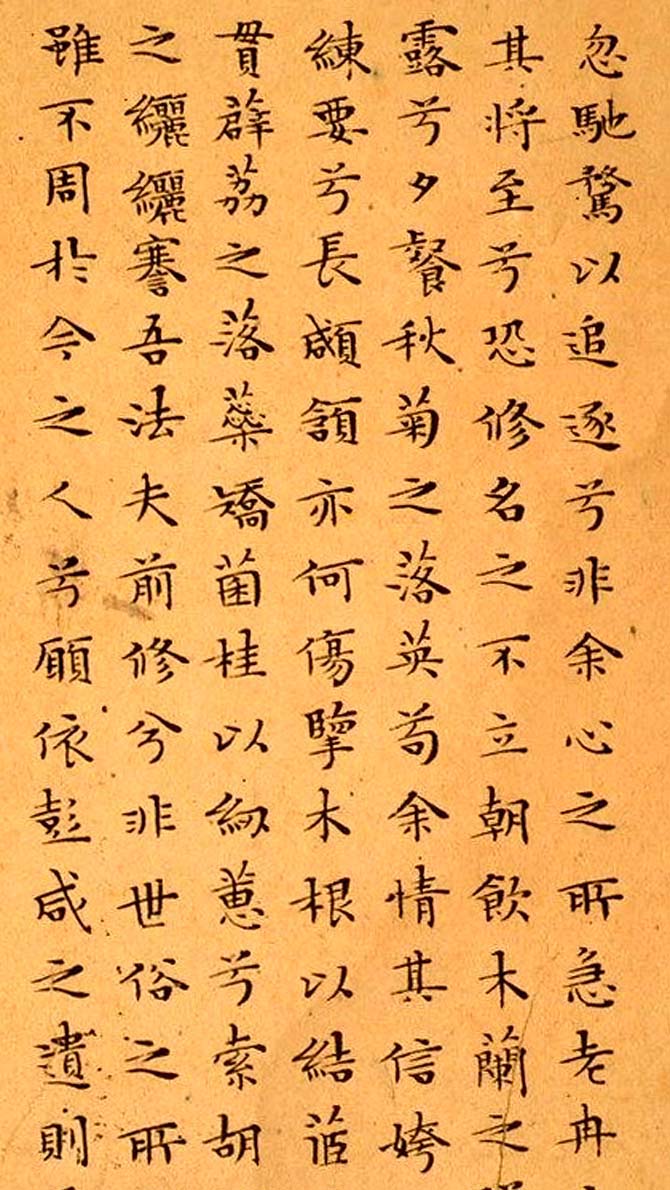 忽馳騖以追逐兮非余心之所急老冉
其将至兮恐修名之不立朝飲木蘭之
露兮夕餐秋菊之落英苟余情其信姱
練要兮長顑頷亦何傷擥木根以結茝
貫薜荔之落蘂矯菌桂以紉蕙兮索胡
之纚纚謇吾法夫前修兮非世俗之所
雖不周於今之人兮願依彭咸之遺則